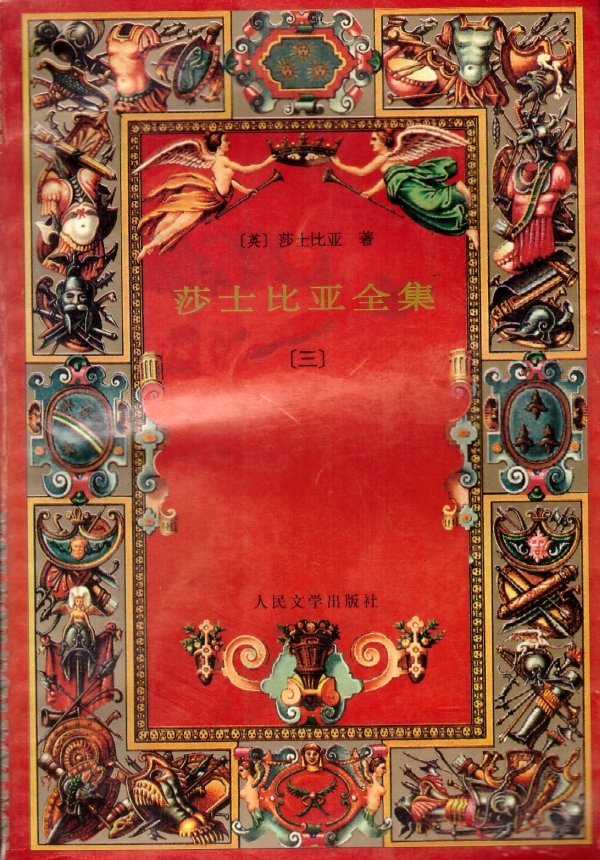 〔英〕莎士比亚 著
莎士比亚全集
〔三〕
人民文学出版社